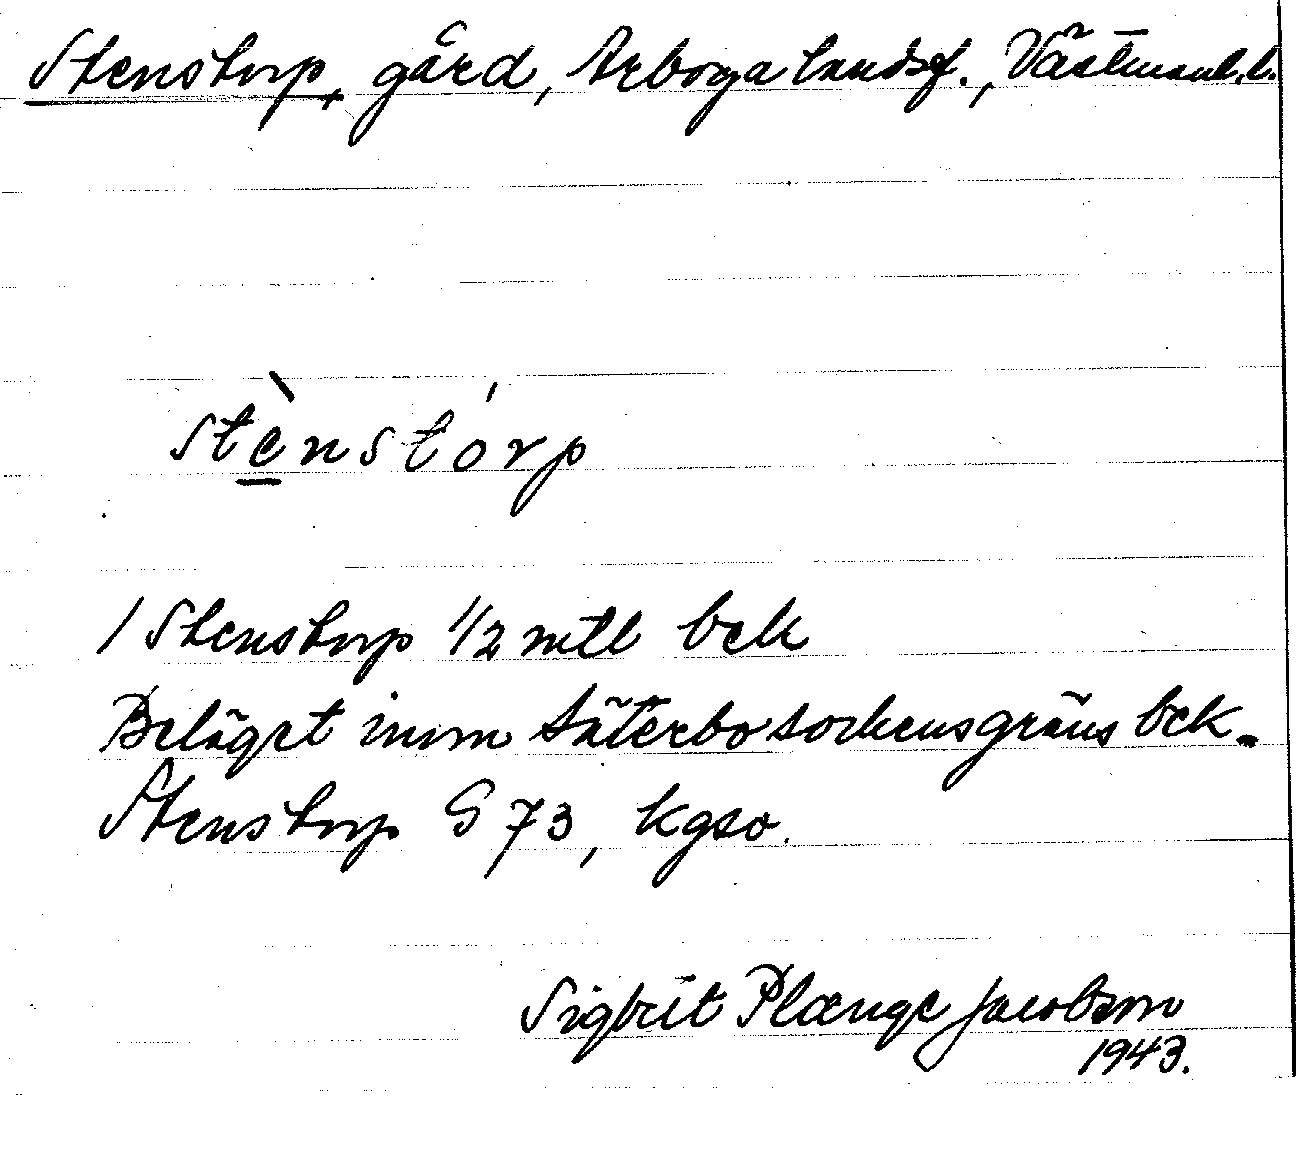 Stenstorp, gård, Arboga landsf., Västmanl. l.
stènstórp
1 Stenstorp 1/2 mtl bek
Beläget inom Säterbo sockensgräns bek.
Stenstorp G 73, kgso.
Sigbrit Plænge Jacobson
1943.